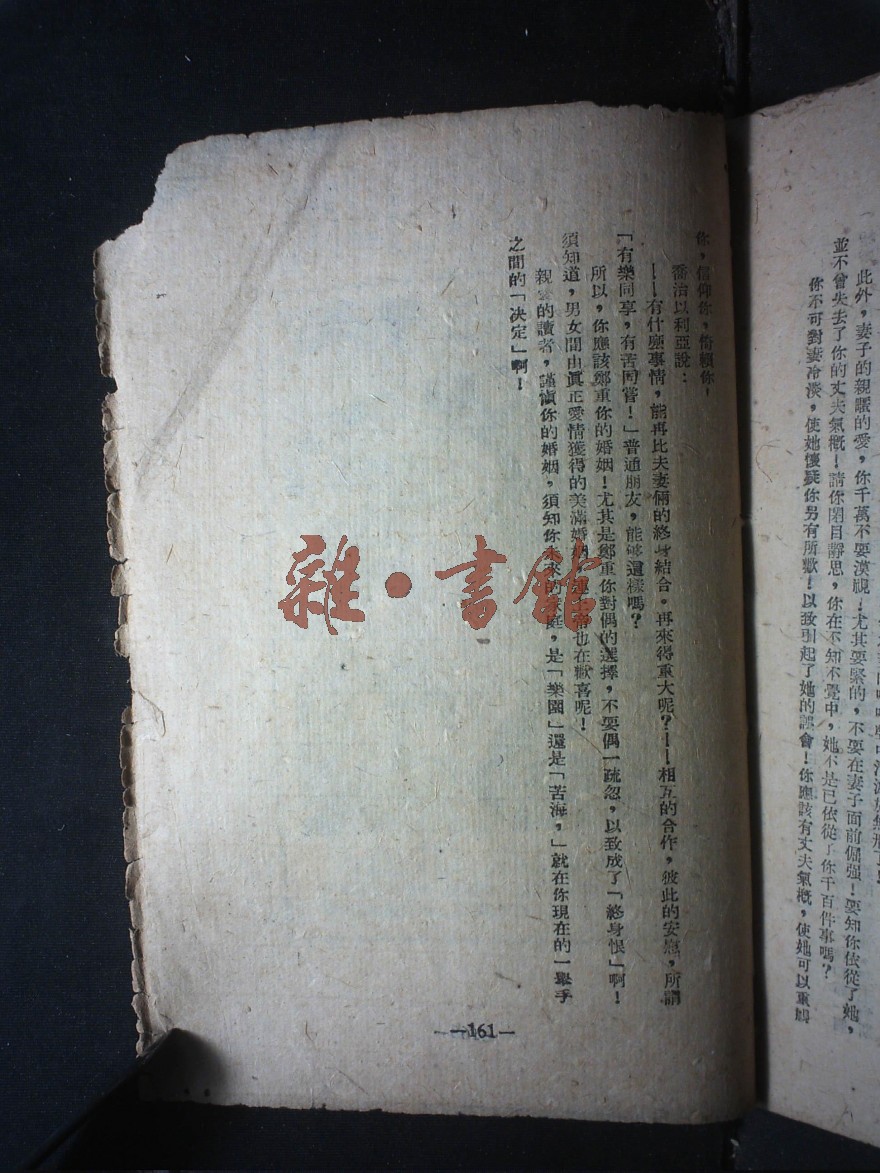 此外，妻子的親暱的愛，你千萬不要漠視！尤其要緊的，不要在妻子面前倔强！要知你依從了她，
並不曾失去了你的丈夫氣概！請你閉目靜思，你在不知不覺中，她不是已依從了你千百件事嗎？
你不可對妻冷淡，使她懷疑你另有所歡！以致引起了她的誤會！你應該有丈夫氣概，使她可以重
你，信仰你，倚賴你，
喬治以利亞說：
——有什麽事情，能再比夫妻倆的終身結合。再來得重大呢？——相互的合作，彼此的安慰，所謂
「有樂同享，有苦同嘗！」普通朋友，能够這樣嗎？
所以，你應該鄭重你的婚姻！尤其是鄭重你對偶的選擇，不要偶一疏忽，以致成了「終身恨」啊！
須知道，男女間由眞正愛情獲得的美滿婚姻，連上帝也在歡喜呢！
親愛的讀者，謹愼你的婚姻，須知你未來的家庭，是「樂園」還是「苦海，」就在你現在的一舉手
之間的「决定」啊！
—161—
雜·書館